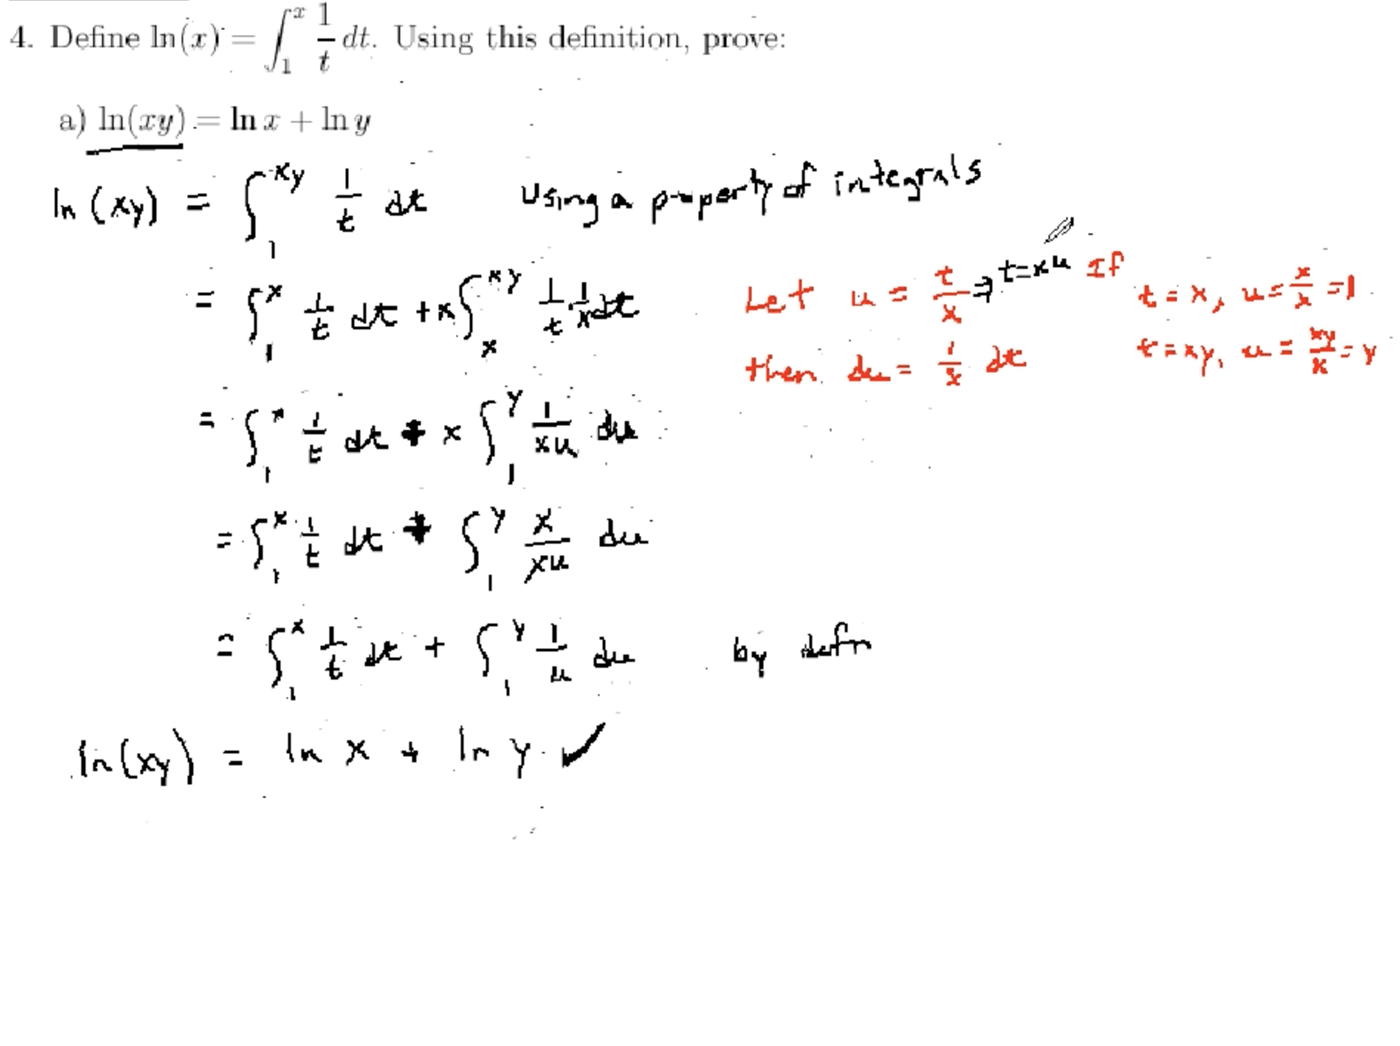 4. Define ln(x) = ∫₁ˣ 1/t dt. Using this definition, prove:
a) ln(xy) = ln x + ln y
ln(xy) = ∫₁ˣʸ 1/t dt Using a property of integrals
= ∫₁ˣ 1/t dt + x∫ₓˣʸ 1/t 1/x dt Let u = t/x ⇒ t=xu If t=x, u=x/x=1
then du = 1/x dt t=xy, u=xy/x=y
= ∫₁ˣ 1/t dt + x ∫₁ʸ 1/xu du
= ∫₁ˣ 1/t dt + ∫₁ʸ x/xu du
= ∫₁ˣ 1/t dt + ∫₁ʸ 1/u du by defn
ln(xy) = ln x + ln y. ✓